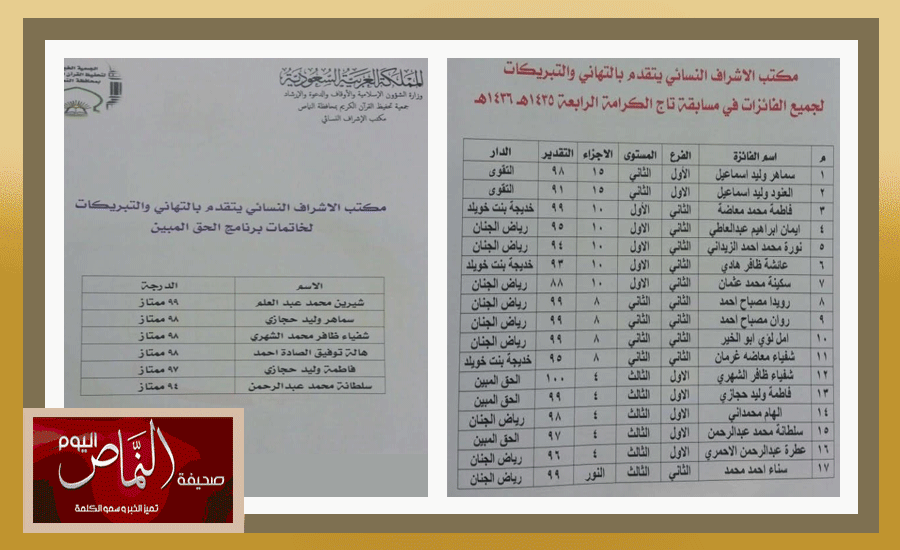 مكتب الاشراف النسائي يتقدم بالتهاني والتبريكات
لجميع الفائزات في مسابقة تاج الكرامة الرابعة ١٤٣٥هـ ١٤٣٦هـ
م اسم الفائزة الفرع المستوى الاجزاء التقدير الدار
١ سماهر وليد اسماعيل الأول الثاني ١٥ ٩٨ التقوى
٢ العنود وليد اسماعيل الأول الثاني ١٥ ٩١ التقوى
٣ فاطمة محمد معاضة الثاني الأول ١٠ ٩٩ خديجة بنت خويلد
٤ ايمان ابراهيم عبدالعاطي الثاني الاول ١٠ ٩٥ رياض الجنان
٥ نورة محمد احمد الزيداني الثاني الاول ١٠ ٩٤ رياض الجنان
٦ عائشة ظافر هادي الثاني الاول ١٠ ٩٣ خديجة بنت خويلد
٧ سكينة محمد عثمان الثاني الاول ١٠ ٨٨ رياض الجنان
٨ رويدا مصباح احمد الثاني الثاني ٨ ٩٩ رياض الجنان
٩ روان مصباح احمد الثاني الثاني ٨ ٩٩ رياض الجنان
١٠ امل لؤي ابو الخير الثاني الثاني ٨ ٩٩ رياض الجنان
١١ شفياء معاضه غرمان الثاني الثاني ٨ ٩٥ خديجة بنت خويلد
١٢ شفياء ظافر الشهري الاول الثالث ٤ ١٠٠ الحق المبين
١٣ فاطمة وليد حجازي الاول الثالث ٤ ٩٩ الحق المبين
١٤ الهام محمداني الاول الثالث ٤ ٩٨ رياض الجنان
١٥ سلطانة محمد عبدالرحمن الاول الثالث ٤ ٩٧ الحق المبين
١٦ عطرة عبدالرحمن الاحمري الاول الثالث ٤ ٩٦ رياض الجنان
١٧ سناء احمد محمد الثاني الثالث النور ٩٩ رياض الجنان
المملكة العربية السعودية
وزارة الشؤون الإسلامية والأوقاف والدعوة والإرشاد
جمعية تحفيظ القرآن الكريم بمحافظة النماص
مكتب الإشراف النسائي
مكتب الاشراف النسائي يتقدم بالتهاني والتبريكات
لخاتمات برنامج الحق المبين
الاسم الدرجة
شيرين محمد عبد العلم ٩٩ ممتاز
سماهر وليد حجازي ٩٨ ممتاز
شفياء ظافر محمد الشهري ٩٨ ممتاز
هالة توفيق الصادة احمد ٩٨ ممتاز
فاطمة وليد حجازي ٩٧ ممتاز
سلطانة محمد عبدالرحمن ٩٤ ممتاز
صحيفة النماص اليوم
تميز الخبر وسمو الكلمة